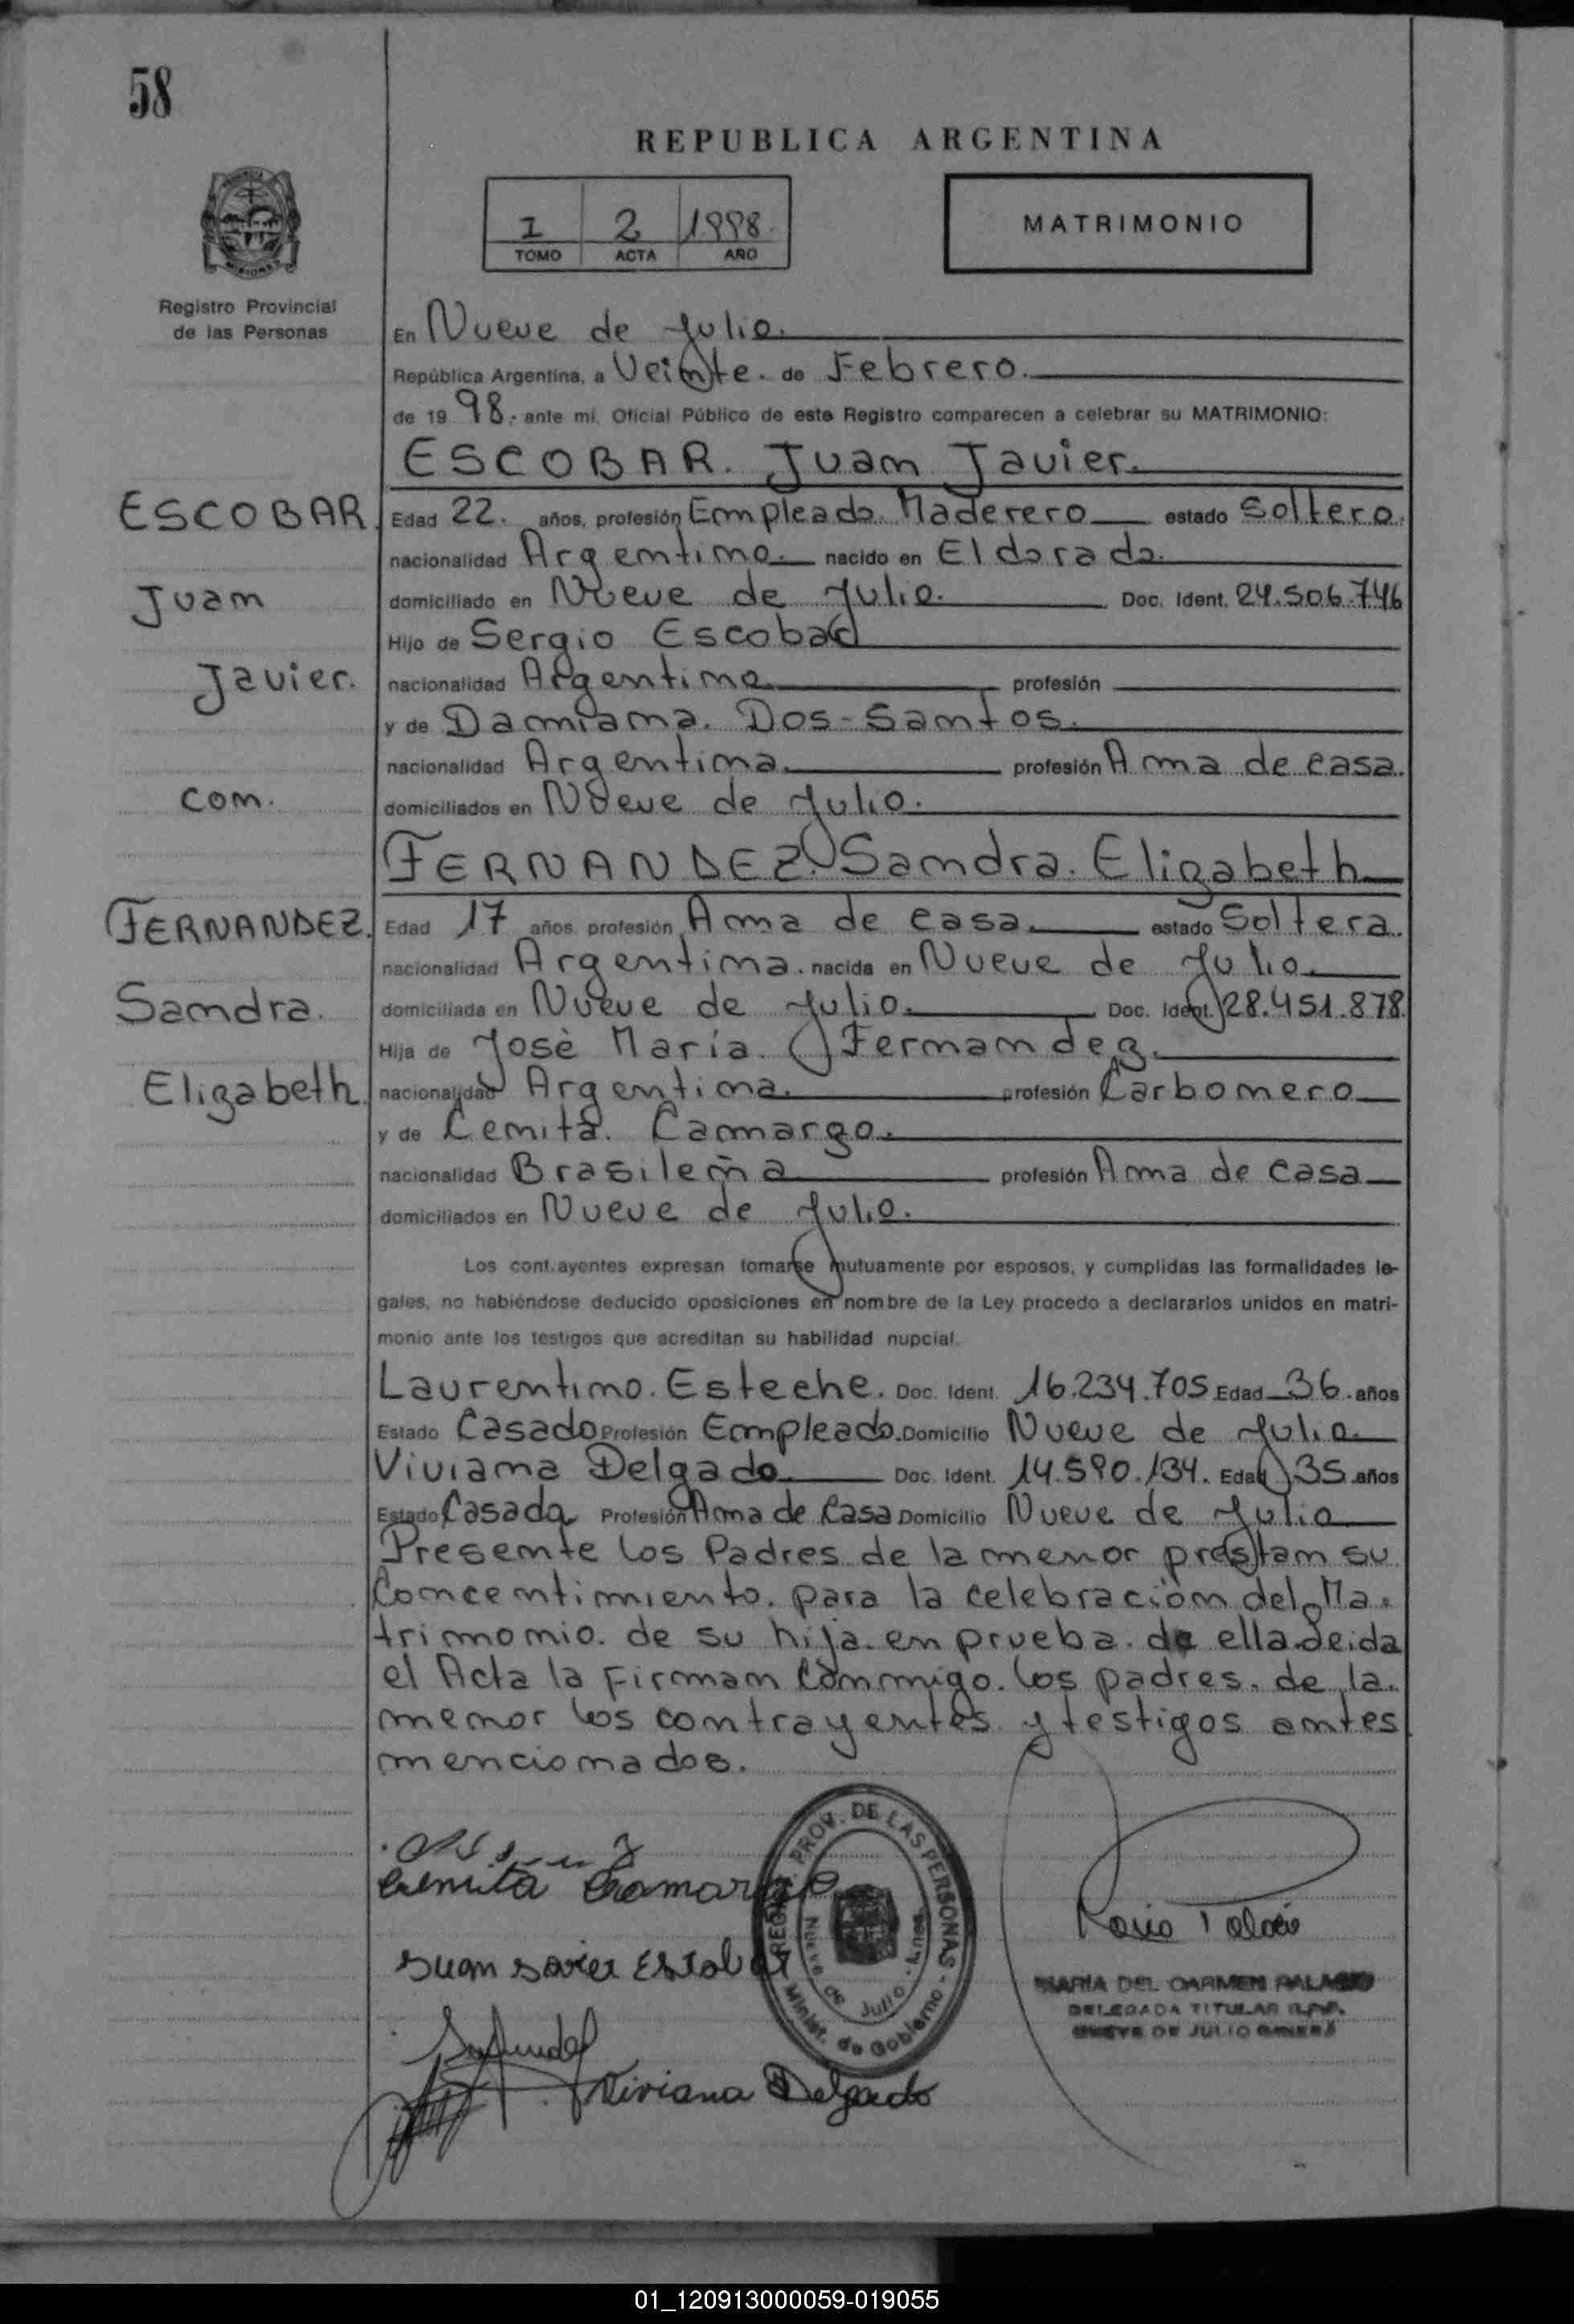 58
REPUBLICA ARGENTINA
I 2 1998.
TOMO ACTA AÑO
MATRIMONIO
Registro Provincial
de las Personas
En Nueve de Julio.
República Argentina, a Veinte. de Febrero.
de 19 98. ante mi, Oficial Público de este Registro comparecen a celebrar su MATRIMONIO:
ESCOBAR. Juan Javier.
ESCOBAR.
Juan
Javier.
con.
FERNANDEZ.
Sandra.
Elizabeth
Edad 22. años, profesión Empleado Maderero estado Soltero.
nacionalidad Argentino. nacido en Eldorado.
domiciliado en Nueve de Julio. Doc. Ident. 24.506.746
Hijo de Sergio Escobar
nacionalidad Argentino profesión
y de Damiana. Dos-Santos.
nacionalidad Argentina. profesión Ama de casa.
domiciliados en Nueve de Julio.
FERNANDEZ. Sandra. Elizabeth
Edad 17 años, profesión Ama de casa. estado Soltera.
nacionalidad Argentina. nacida en Nueve de Julio.
domiciliada en Nueve de Julio. Doc. Ident. 28.451.878.
Hija de José María. Fernandez.
nacionalidad Argentina. profesión Carbonero
y de Cenita. Camargo.
nacionalidad Brasileña profesión Ama de casa
domiciliados en Nueve de Julio.
Los contrayentes expresan tomarse mutuamente por esposos, y cumplidas las formalidades le-
gales, no habiéndose deducido oposiciones en nombre de la Ley procedo a declararlos unidos en matri-
monio ante los testigos que acreditan su habilidad nupcial.
Laurentino. Esteche. Doc. Ident. 16.234.705 Edad 36. años
Estado Casado Profesión Empleado. Domicilio Nueve de Julio.
Viviana Delgado. Doc. Ident. 14.590.134. Edad 35. años
Estado Casada Profesión Ama de Casa Domicilio Nueve de Julio
Presente los Padres de la menor prestan su
Concentimiento. para la celebración del Ma.
trimonio. de su hija. en prueba. de ella Leida
el Acta la Firman Conmigo. los padres. de la.
menor los contrayentes y testigos antes
mencionados.
Cenita Camargo
Juan Javier Escobar
Viviana Delgado
REGIS. PROV. DE LAS PERSONAS - Minist. de Gobierno -
Nueve de Julio - Mnes.
MARIA DEL CARMEN PALACIO
DELEGADA TITULAR R.P.P.
NUEVE DE JULIO
01_120913000059-019055